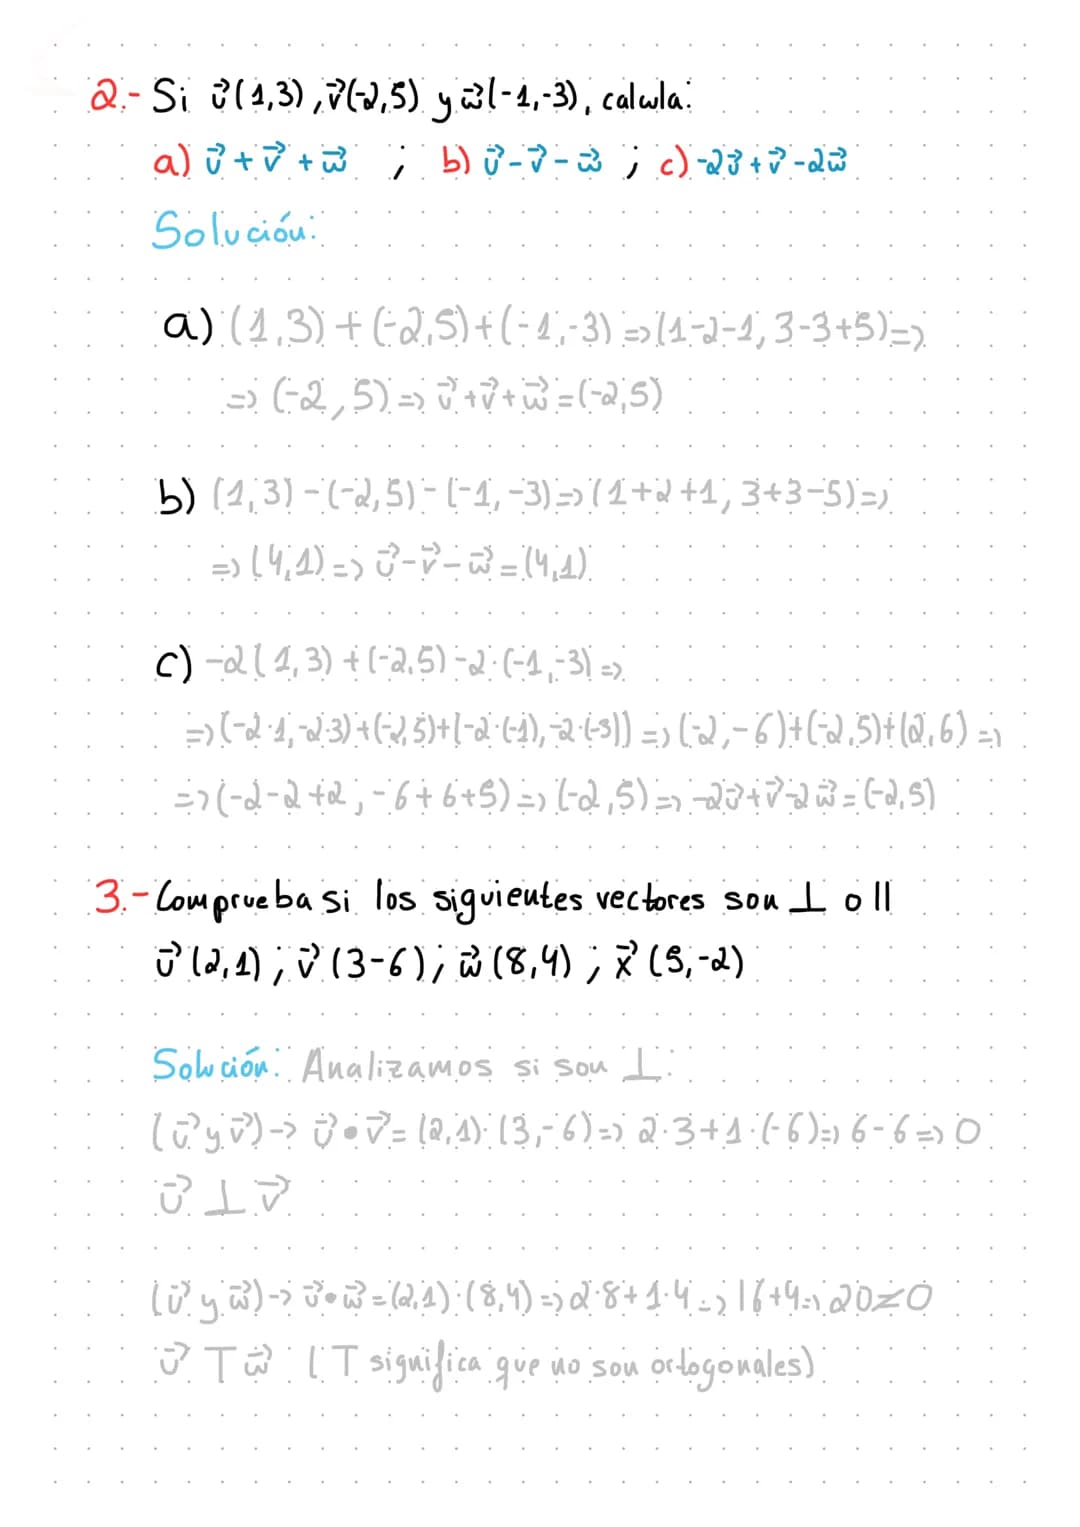 2.- Si u⃗(1,3), v⃗(-2,5) y w⃗(-1,-3), calcula:
a) u⃗ + v⃗ + w⃗ ; b) u⃗ - v⃗ - w⃗ ; c) -2u⃗ + v⃗ - 2w⃗
Solución:
a) (1,3) + (-2,5) + (-1,-3) => (1-2-1, 3-3+5) =>
=> (-2,5) => u⃗ + v⃗ + w⃗ = (-2,5)
b) (1,3) - (-2,5) - (-1,-3) => (1+2+1, 3+3-5) =>
=> (4,1) => u⃗ - v⃗ - w⃗ = (4,1)
c) -2(1,3) + (-2,5) -2·(-1,-3) =>
=> (-2·1, -2·3) + (-2,5) + (-2·(-1), -2·(-3)) => (-2,-6) + (-2,5) + (2,6) =>
=> (-2-2+2, -6+6+5) => (-2,5) => -2u⃗ + v⃗ - 2w⃗ = (-2,5)
3.- Comprueba si los siguientes vectores son ⊥ o ||
u⃗ (2,1) ; v⃗ (3-6) ; w⃗ (8,4) ; x⃗ (5,-2)
Solución: Analizamos si son ⊥:
(u⃗ y v⃗) -> u⃗ • v⃗ = (2,1)·(3,-6) => 2·3+1·(-6) => 6-6 => 0
u⃗ ⊥ v⃗
(u⃗ y w⃗) -> u⃗ • w⃗ = (2,1)·(8,4) => 2·8+1·4 => 16+4 => 20≠0
u⃗ T w⃗ (T significa que no son ortogonales)